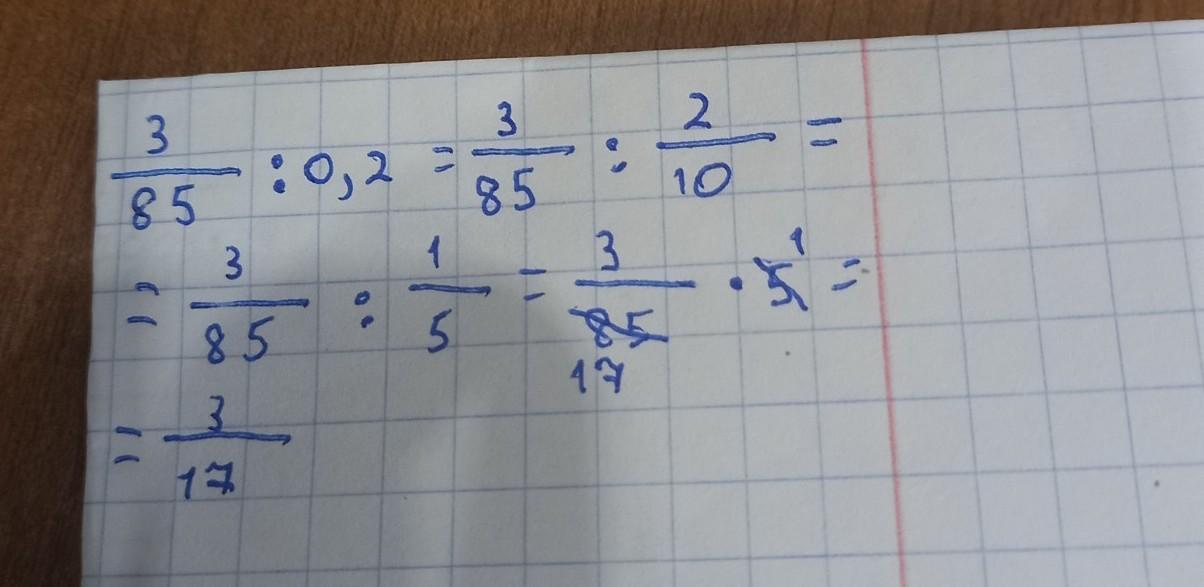 3/85 : 0,2 = 3/85 : 2/10 =
= 3/85 : 1/5 = 3/85 17 · 5 1 =
= 3/17